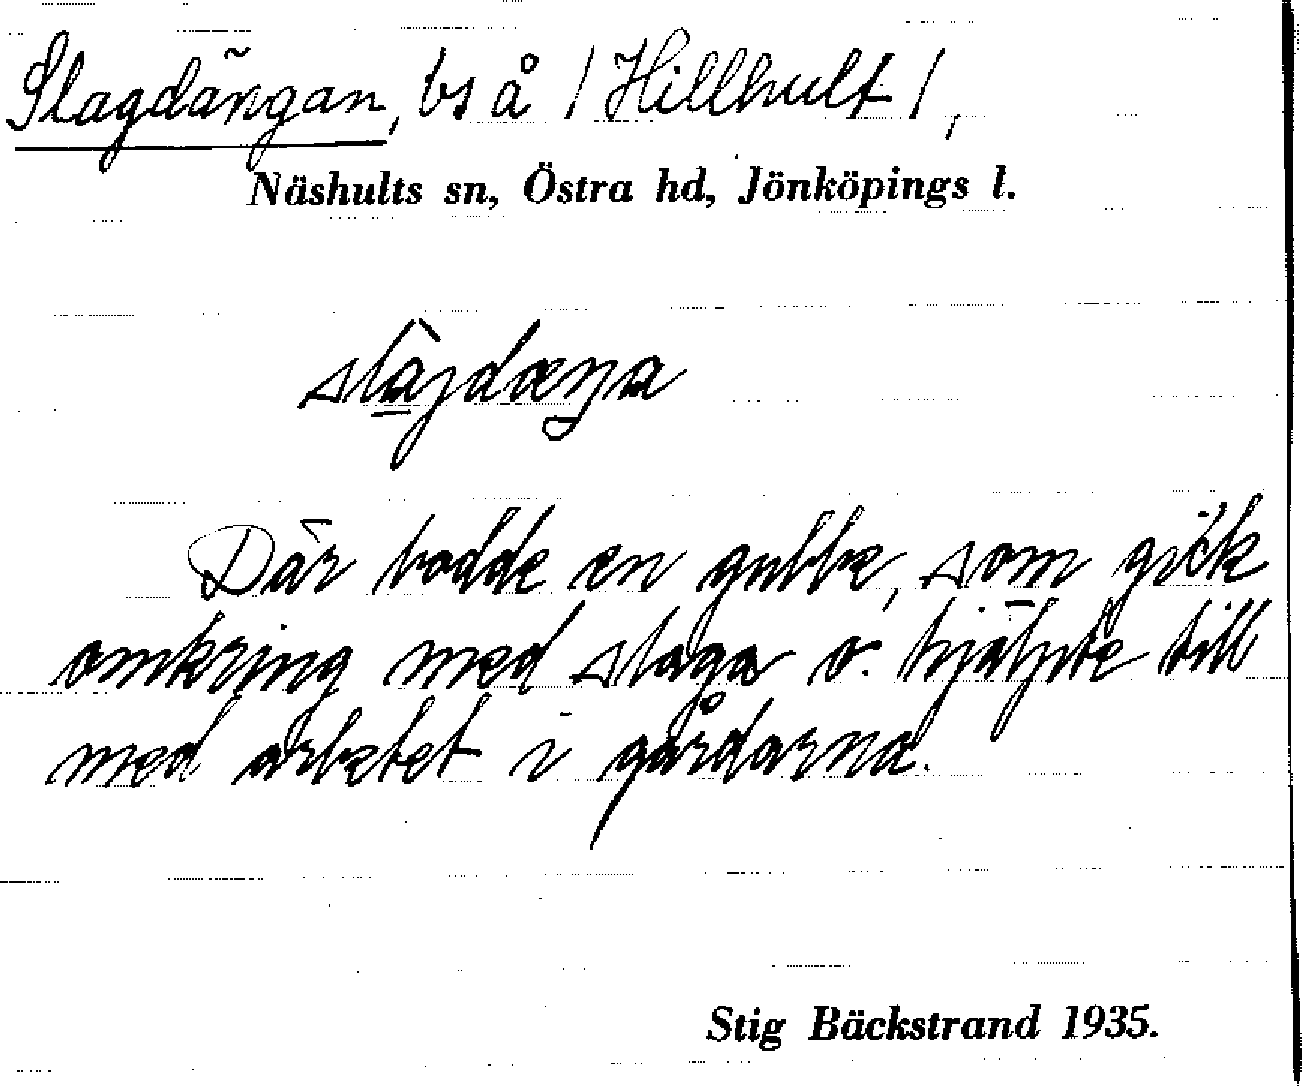 Slagdängan, bs å / Hillhult /,
Näshults sn, Östra hd, Jönköpings l.
Där bodde en gubbe, som gick
omkring med slaga o. hjälpte till
med arbetet i gårdarna.
Stig Bäckstrand 1935.